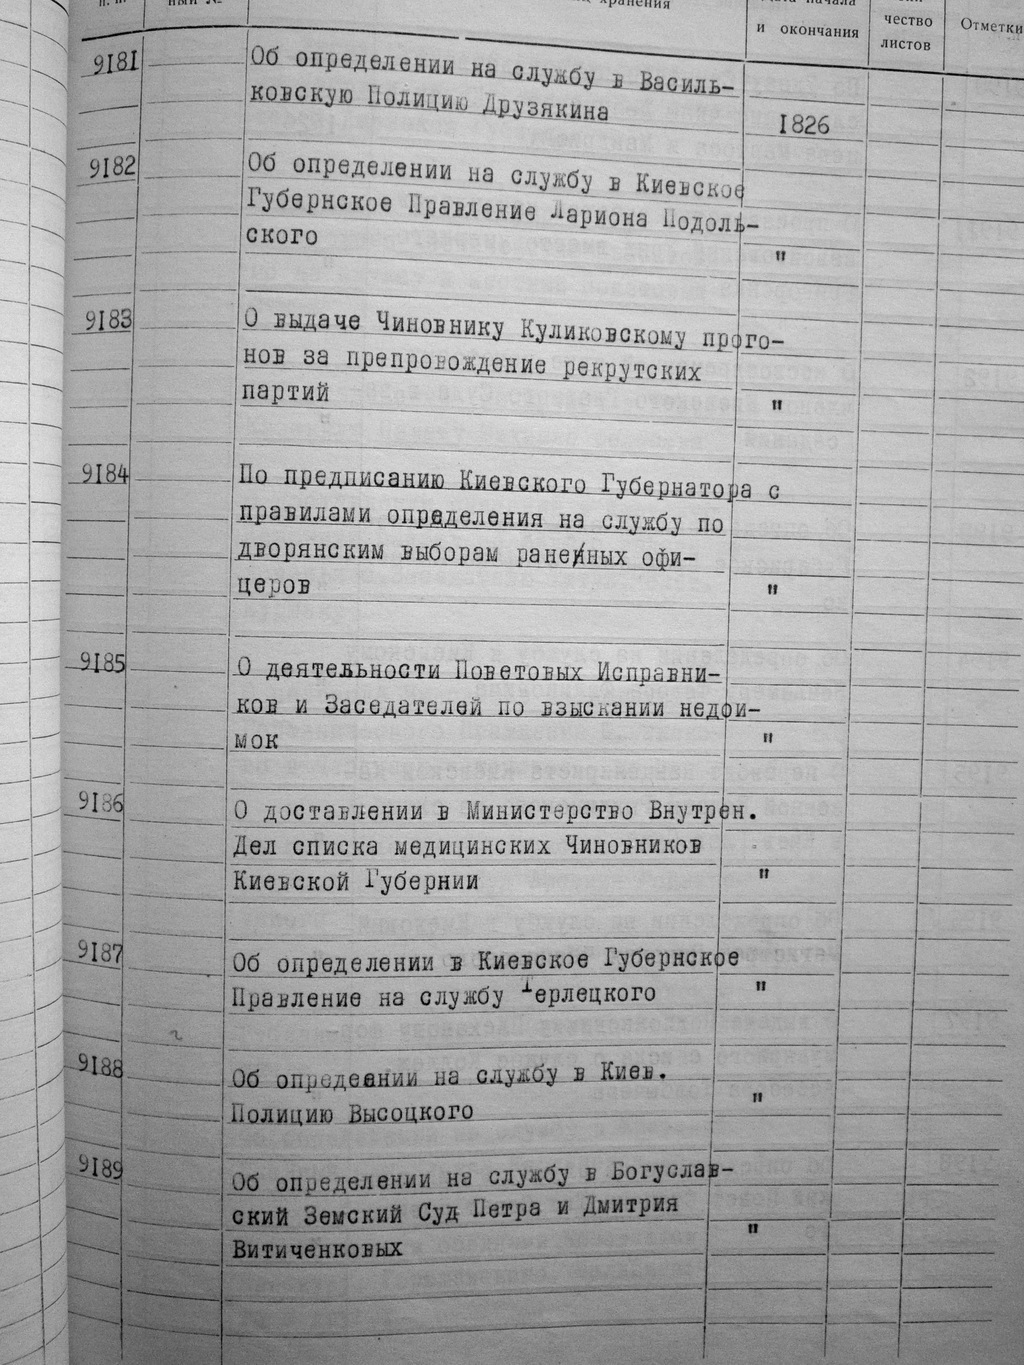 и окончания
чество
листов
Отметки
9181 Об определении на службу в Василь-
ковскую Полицию Друзякина
1826
9182 Об определении на службу в Киевское
Губернское Правление Лариона Подоль-
ского "
9183 О выдаче Чиновнику Куликовскому прого-
нов за препровождение рекрутских
партий "
9184 По предписанию Киевского Губернатора с
правилами определения на службу по
дворянским выборам раненных офи-
церов "
9185 О деятельности Поветовых Исправни-
ков и Заседателей по взыскании недои-
мок "
9186 О доставлении в Министерство Внутрен.
Дел списка медицинских Чиновников
Киевской Губернии "
9187 Об определении в Киевское Губернское
Правление на службу Терлецкого "
9188 Об опредеении на службу в Киев.
Полицию Высоцкого "
9189 Об определении на службу в Богуслав-
ский Земский Суд Петра и Дмитрия
Витиченковых "